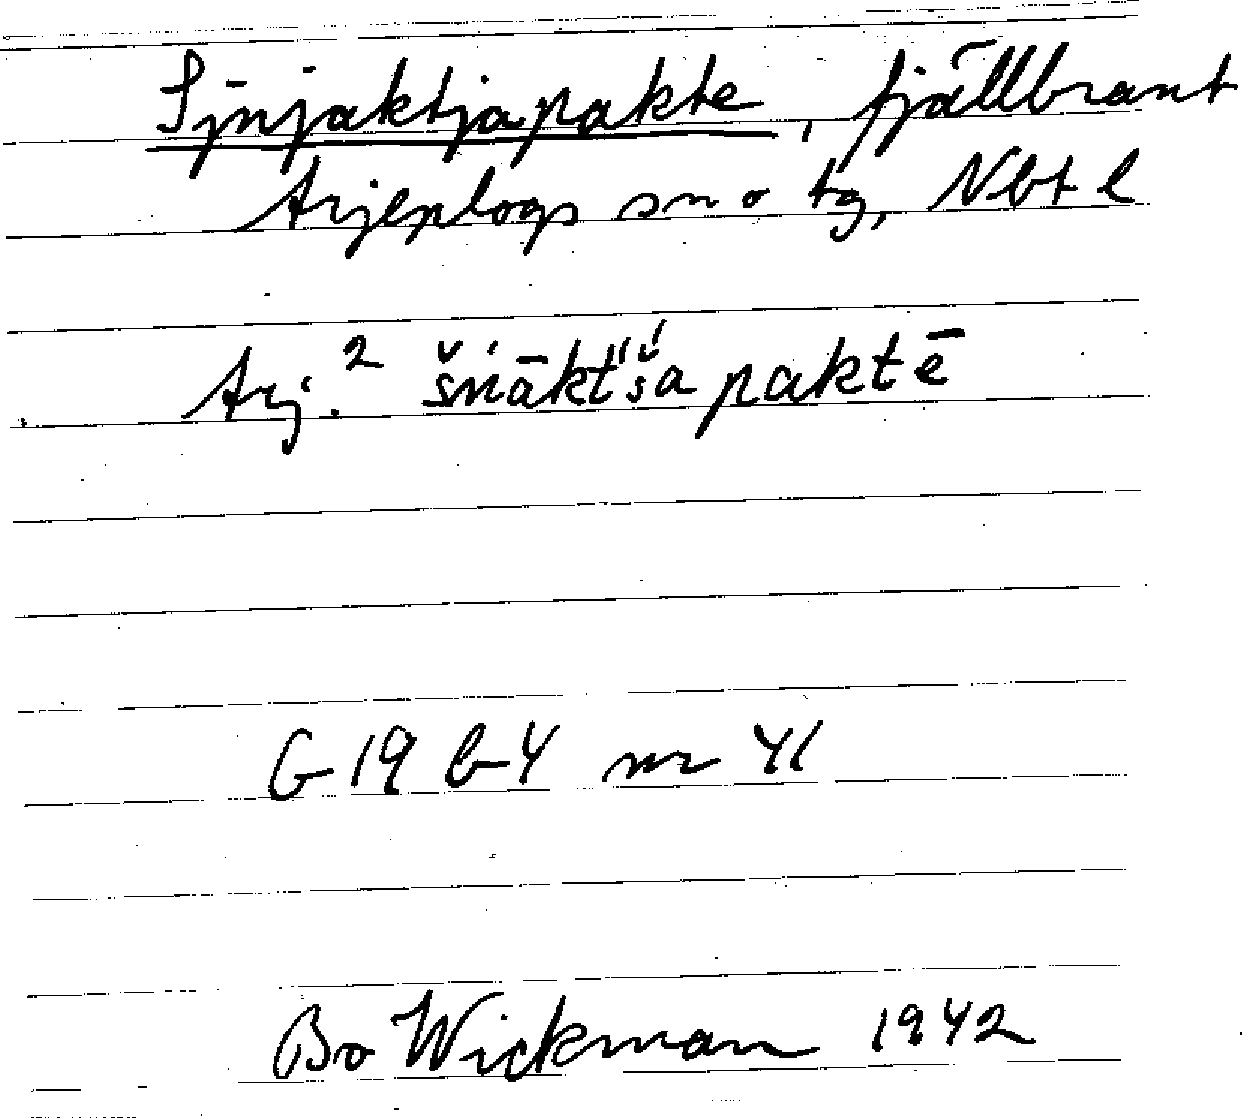 Sjnjaktjapakte, fjällbrant
Arjeplogs sn o tg, Nbt l
Arj.² šńāktš́a paktē
G 19 b 4 nr 41
Bo Wickman 1942